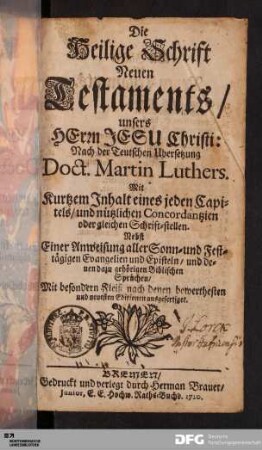 Die
Heilige Schrift
Neuen
Testaments/
unsers
HErrn JESU Christi:
Nach der Teutschen Ubersetzung
Doct. Martin Luthers.
Mit
Kurtzem Inhalt eines jeden Capi-
tels/ und nützlichen Concordantzien
oder gleichen Schrift-stellen.
Nebst
Einer Anweisung aller Sonn- und Fest-
tägigen Evangelien und Episteln/ und de-
nen dazu gehörigen Biblischen
Sprüchen/
Mit besondern Fleiß nach denen bewerthesten
und neuesten Editionen ausgefertiget.
BREMEN/
Gedruckt und verlegt durch Herman Brauer/
Junior, E. E. Hochw. Raths-Buchd. 1710.
DFG
Deutsche
Forschungsgemeinschaft